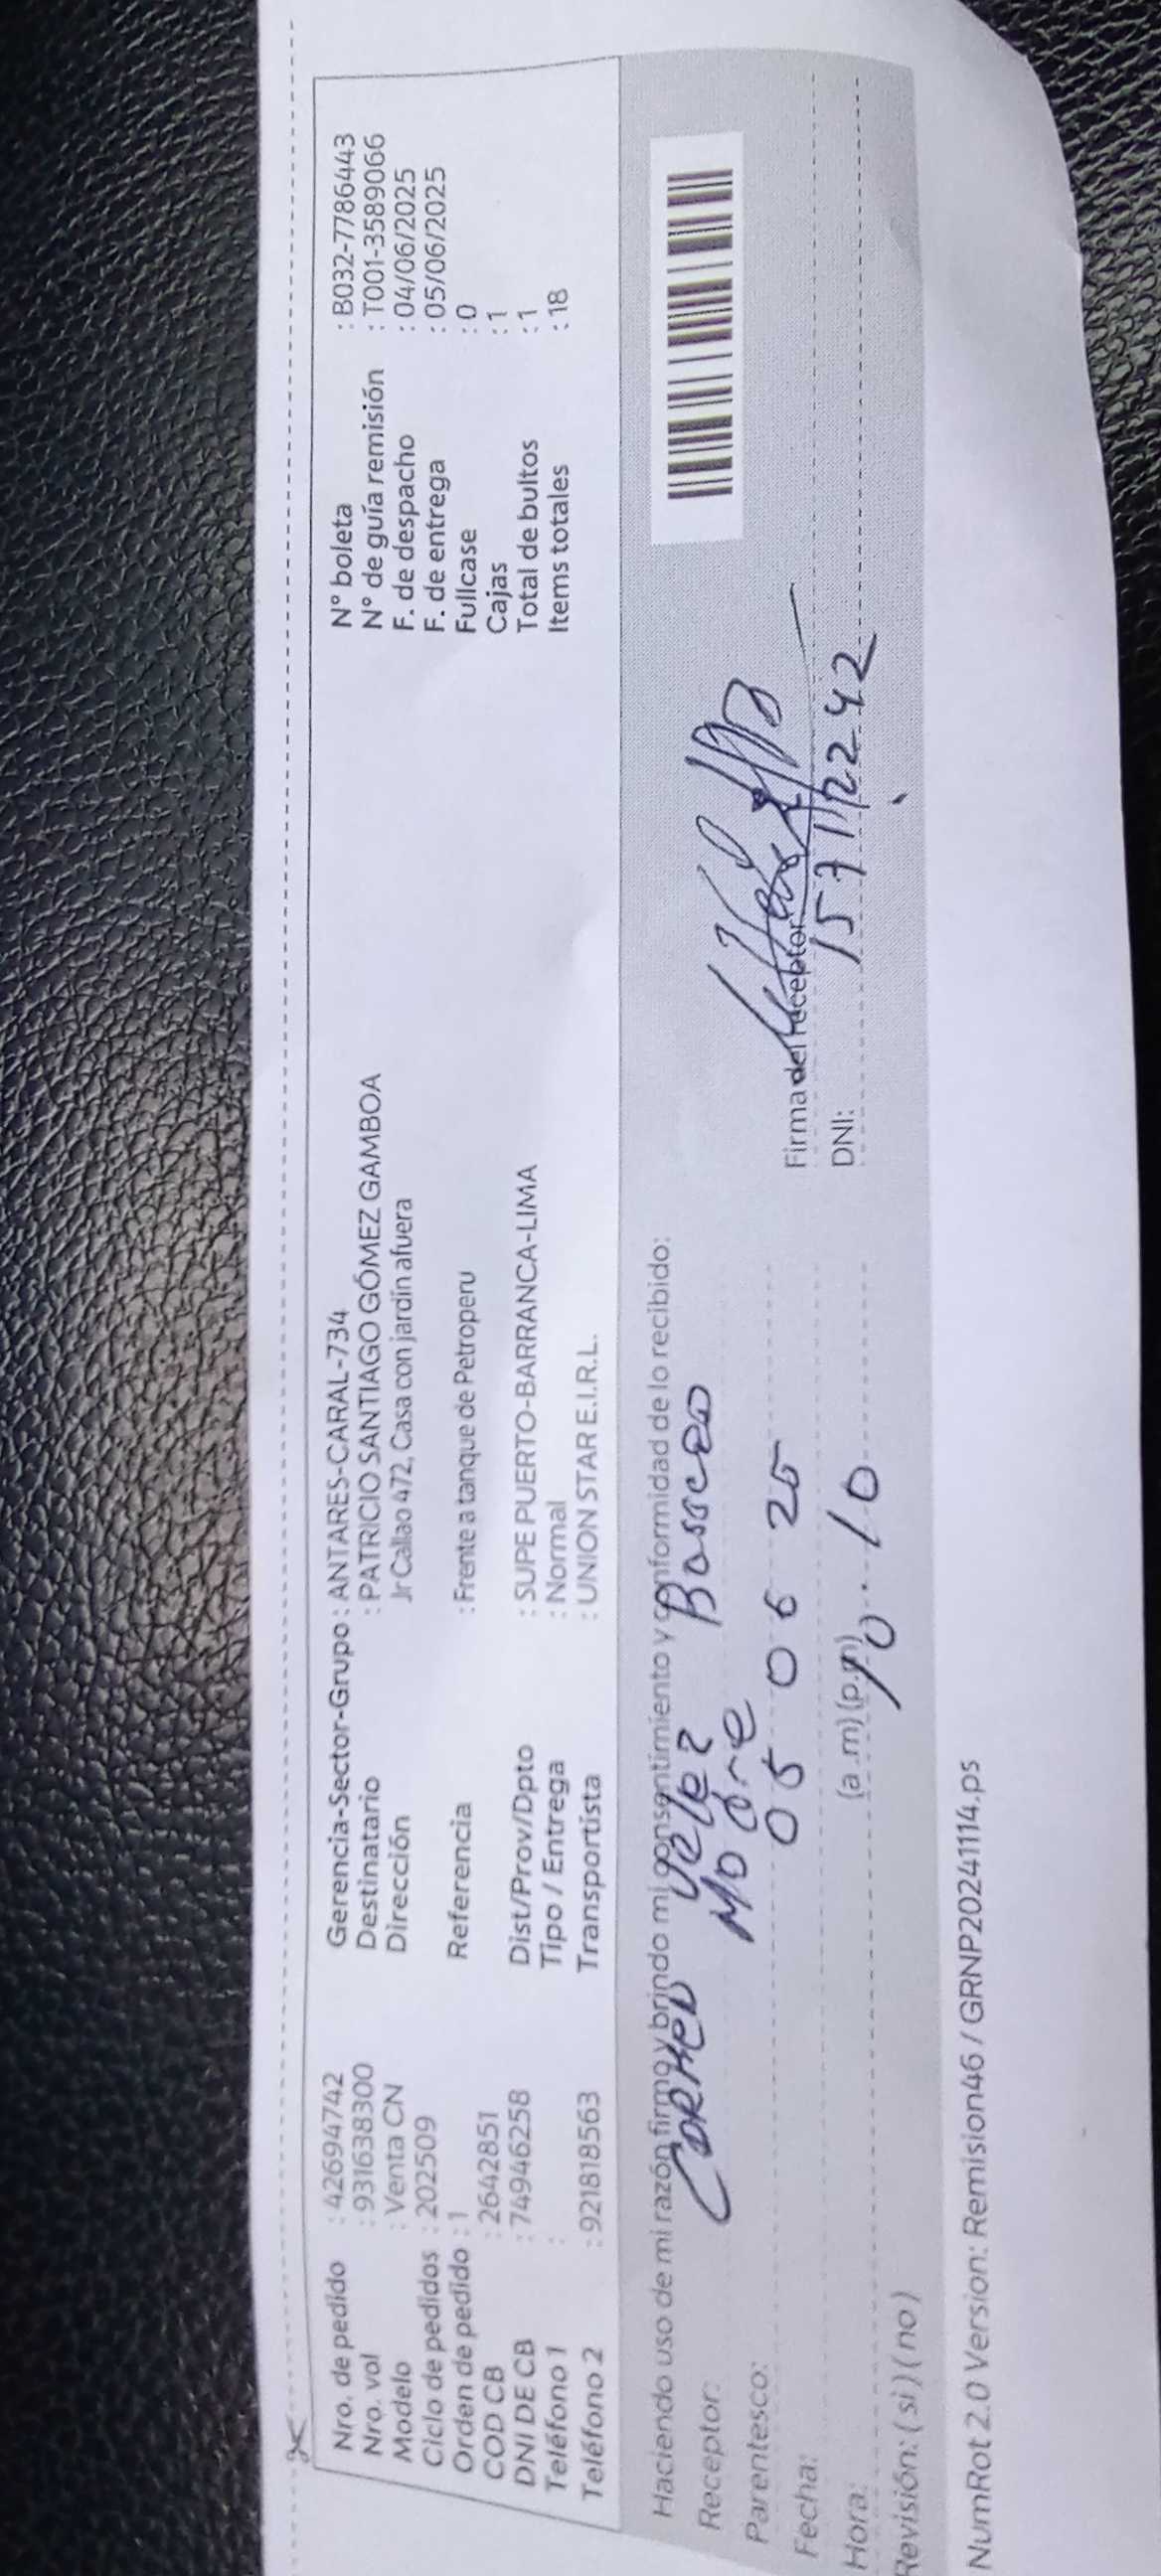 Nro. de pedido : 42694742
Nro. vol : 931638300
Modelo : Venta CN
Ciclo de pedidos : 202509
Orden de pedido : 1
COD CB : 2642851
DNI DE CB : 74946258
Teléfono 1 :
Teléfono 2 : 921818563
Gerencia-Sector-Grupo : ANTARES-CARAL-734
Destinatario : PATRICIO SANTIAGO GÓMEZ GAMBOA
Dirección Jr Callao 472, Casa con jardín afuera
Referencia : Frente a tanque de Petroperu
Dist/Prov/Dpto : SUPE PUERTO-BARRANCA-LIMA
Tipo / Entrega : Normal
Transportista : UNION STAR E.I.R.L.
N° boleta : B032-7786443
N° de guía remisión : T001-3589066
F. de despacho : 04/06/2025
F. de entrega : 05/06/2025
Fullcase : 0
Cajas : 1
Total de bultos : 1
Items totales : 18
Haciendo uso de mi razón firmo y brindo mi consentimiento y conformidad de lo recibido:
Receptor: Carmen
Parentesco: Madre
Fecha: 05 06 25
Hora: (a.m) (p.m) 10.10
Revisión: ( si ) ( no )
Firma del receptor
DNI:
NumRot 2.0 Version: Remision46 / GRNP20241114.ps